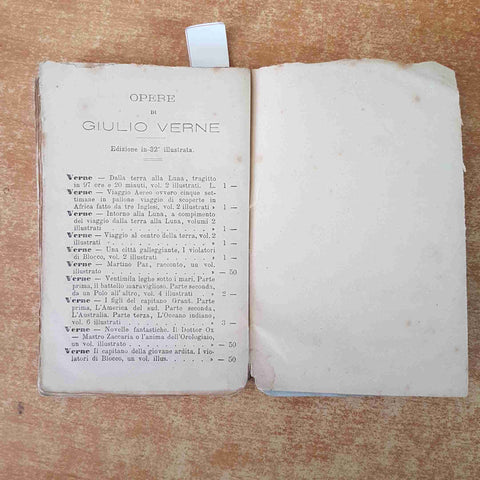 OPERE
DI
GIULIO VERNE
Edizione in-32° illustrata.
Verne — Dalla terra alla Luna, tragitto
in 97 ore e 20 minuti, vol. 2 illustrati. L. 1 —
Verne — Viaggio Aereo ovvero cinque set-
timane in pallone viaggio di scoperte in
Africa fatto da tre Inglesi, vol. 2 illustrati » 1 —
Verne — Intorno alla Luna, a compimento
del viaggio dalla terra alla Luna, volumi 2
illustrati . . . . . . . . . . » 1 —
Verne — Viaggio al centro della terra, vol. 2
illustrati . . . . . . . . . . » 1 —
Verne — Una città galleggiante, I violatori
di Blocco, vol. 2 illustrati . . . . » 1 —
Verne — Martino Paz, racconto, un vol.
illustrato . . . . . . . . . . » — 50
Verne — Ventimila leghe sotto i mari. Parte
prima, il battello maraviglioso. Parte seconda,
da un Polo all'altro, vol. 4 illustrati . . » 2 —
Verne — I figli del capitano Grant. Parte
prima, L'America del sud. Parte seconda,
L'Australia. Parte terza, L'Oceano indiano,
vol. 6 illustrati . . . . . . . . » 3 —
Verne — Novelle fantastiche. Il Dottor Ox
— Mastro Zaccaria o l'anima dell'Orologiaio,
un vol. illustrato . . . . . . . » — 50
Verne Il capitano della giovane ardita, I vio-
latori di Blocco, un vol. illus. . . . » — 50